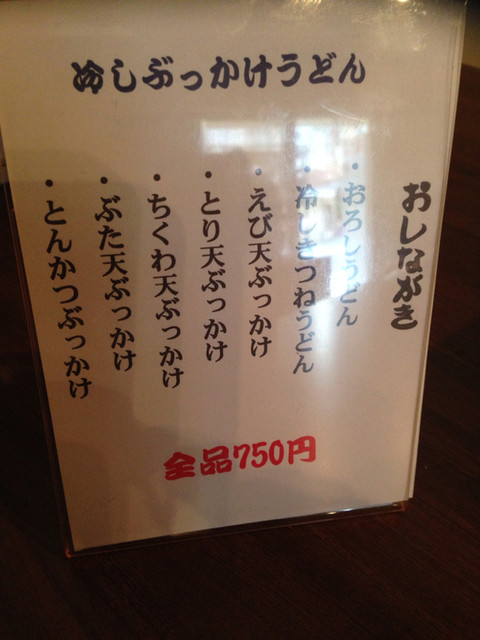 冷しぶっかけうどん
おしながき
・おろしうどん
・冷しきつねうどん
・えび天ぶっかけ
・とり天ぶっかけ
・ちくわ天ぶっかけ
・ぶた天ぶっかけ
・とんかつぶっかけ
全品750円